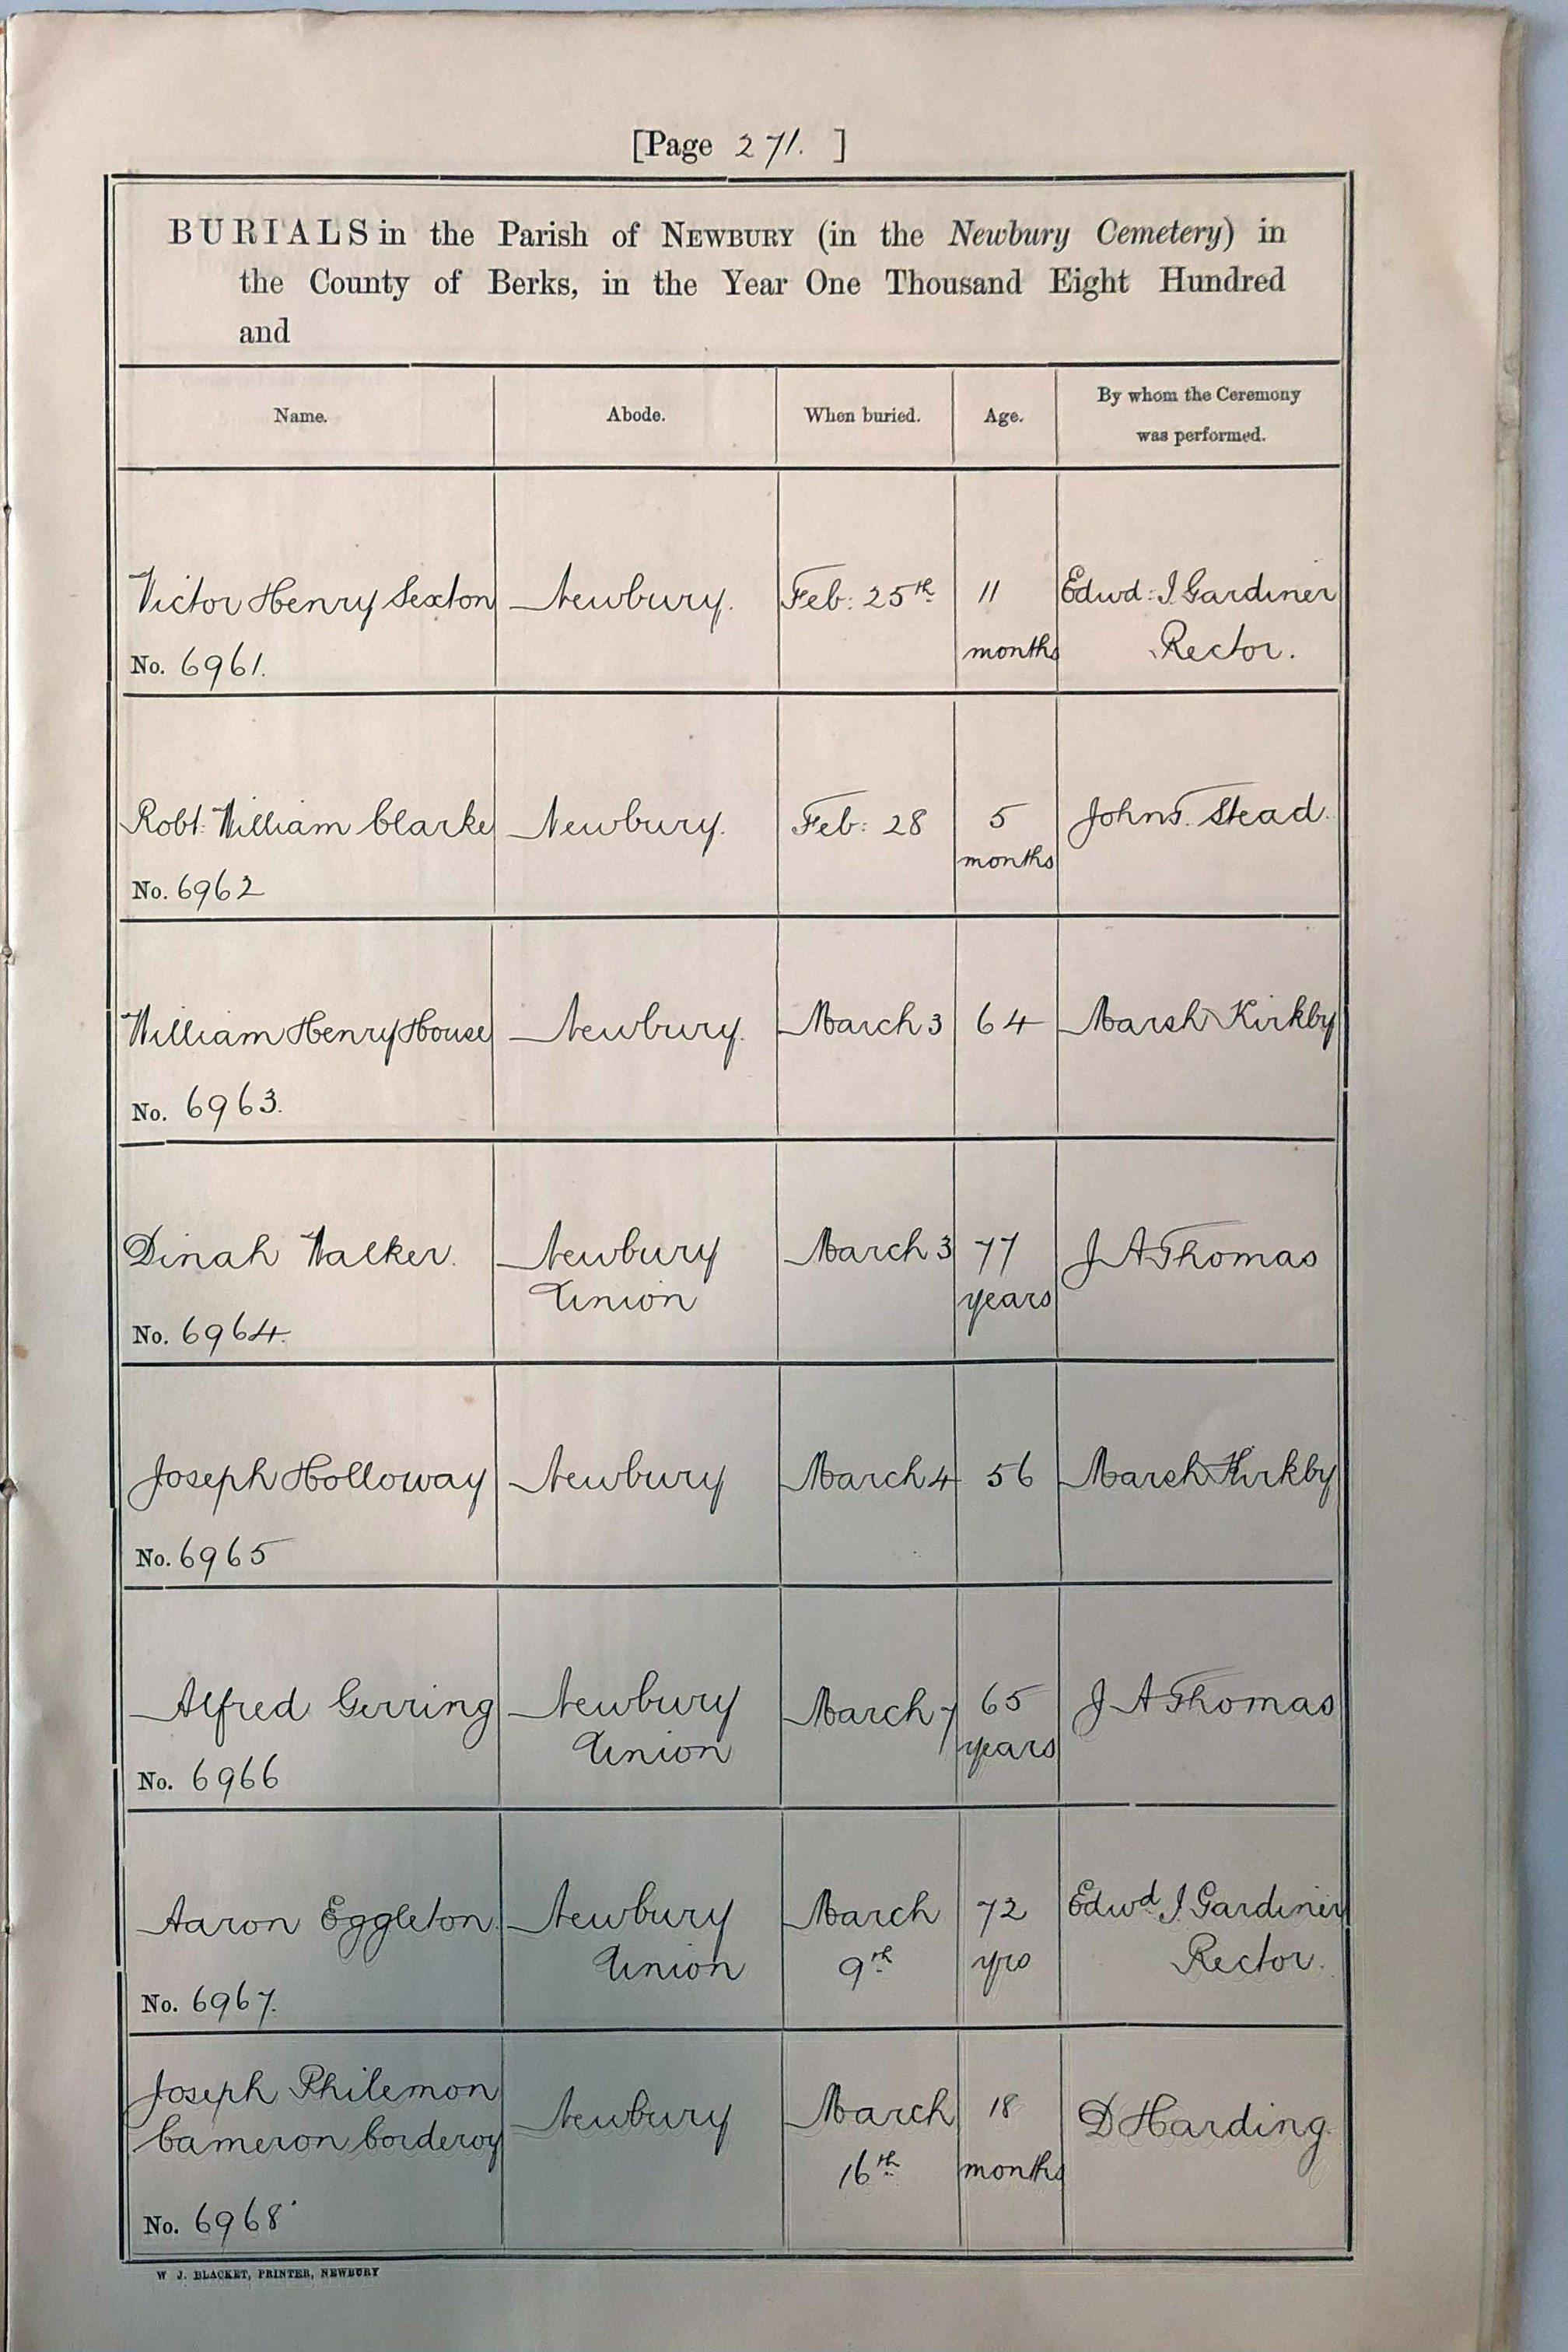 [Page 271. ]
BURIALS in the Parish of NEWBURY (in the Newbury Cemetery) in
the County of Berks, in the Year One Thousand Eight Hundred
and
Name. Abode. When buried. Age. By whom the Ceremony
was performed.
Victor Henry Sexton Newbury. Feb: 25th 11 Edwd: I Gardiner
months Rector.
No. 6961.
Robt: William Clarke Newbury. Feb: 28 5 John T. Stead.
months
No. 6962
William Henry House Newbury. March 3 64 Marsh Kirkby
No. 6963.
Dinah Walker. Newbury March 3 77 J A Thomas
Union years
No. 6964.
Joseph Holloway Newbury March 4 56 Marsh Kirkby
No. 6965
Alfred Gerring Newbury March 7 65 J A Thomas
Union years
No. 6966
Aaron Eggleton. Newbury March 72 Edwd I Gardiner
Union 9th yrs Rector.
No. 6967.
Joseph Philemon Newbury March 18 D Harding.
Cameron Corderoy 16th months
No. 6968
W J. BLACKET, PRINTER, NEWBURY